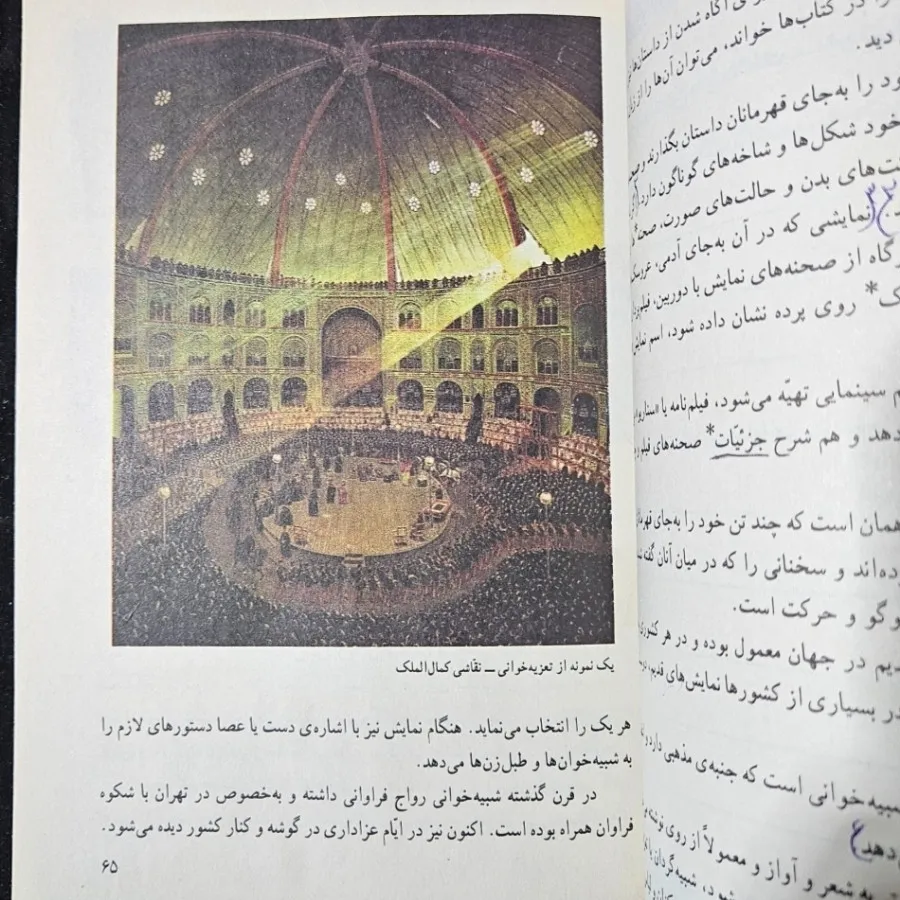 یک نمونه از تعزیه‌خوانی ــ نقّاشی کمال‌الملک
هر یک را انتخاب می‌نماید. هنگام نمایش نیز با اشاره‌ی دست یا عصا دستورهای لازم را
به شبیه‌خوان‌ها و طبل‌زن‌ها می‌دهد.
در قرن گذشته شبیه‌خوانی رواج فراوانی داشته و به‌خصوص در تهران با شکوه
فراوان همراه بوده است. اکنون نیز در ایّام عزاداری در گوشه و کنار کشور دیده می‌شود.
۶۵
آگاه شدن از داستان‌ها
در کتاب‌ها خواند، می‌توان آن‌ها را از
دید.
را به‌جای قهرمانان داستان بگذارند و
خود شکل‌ها و شاخه‌های گوناگون دارد.
بدن و حالت‌های صورت، صحنه
نمایشی که در آن به‌جای آدمی،
از صحنه‌های نمایش با دوربین،
* روی پرده نشان داده شود، اسم
سینمایی تهیّه می‌شود، فیلم‌نامه یا سناریو
و هم شرح جزئیّات* صحنه‌های فیلم
همان است که چند تن خود را به‌جای
و سخنانی را که در میان آنان گفته
و حرکت است.
در جهان معمول بوده و در هر کشوری
در بسیاری از کشورها نمایش‌های قدیم،
شبیه‌خوانی است که جنبه‌ی مذهبی دارد و
به شعر و آواز و معمولاً از روی نوشته
شبیه‌گردان یا